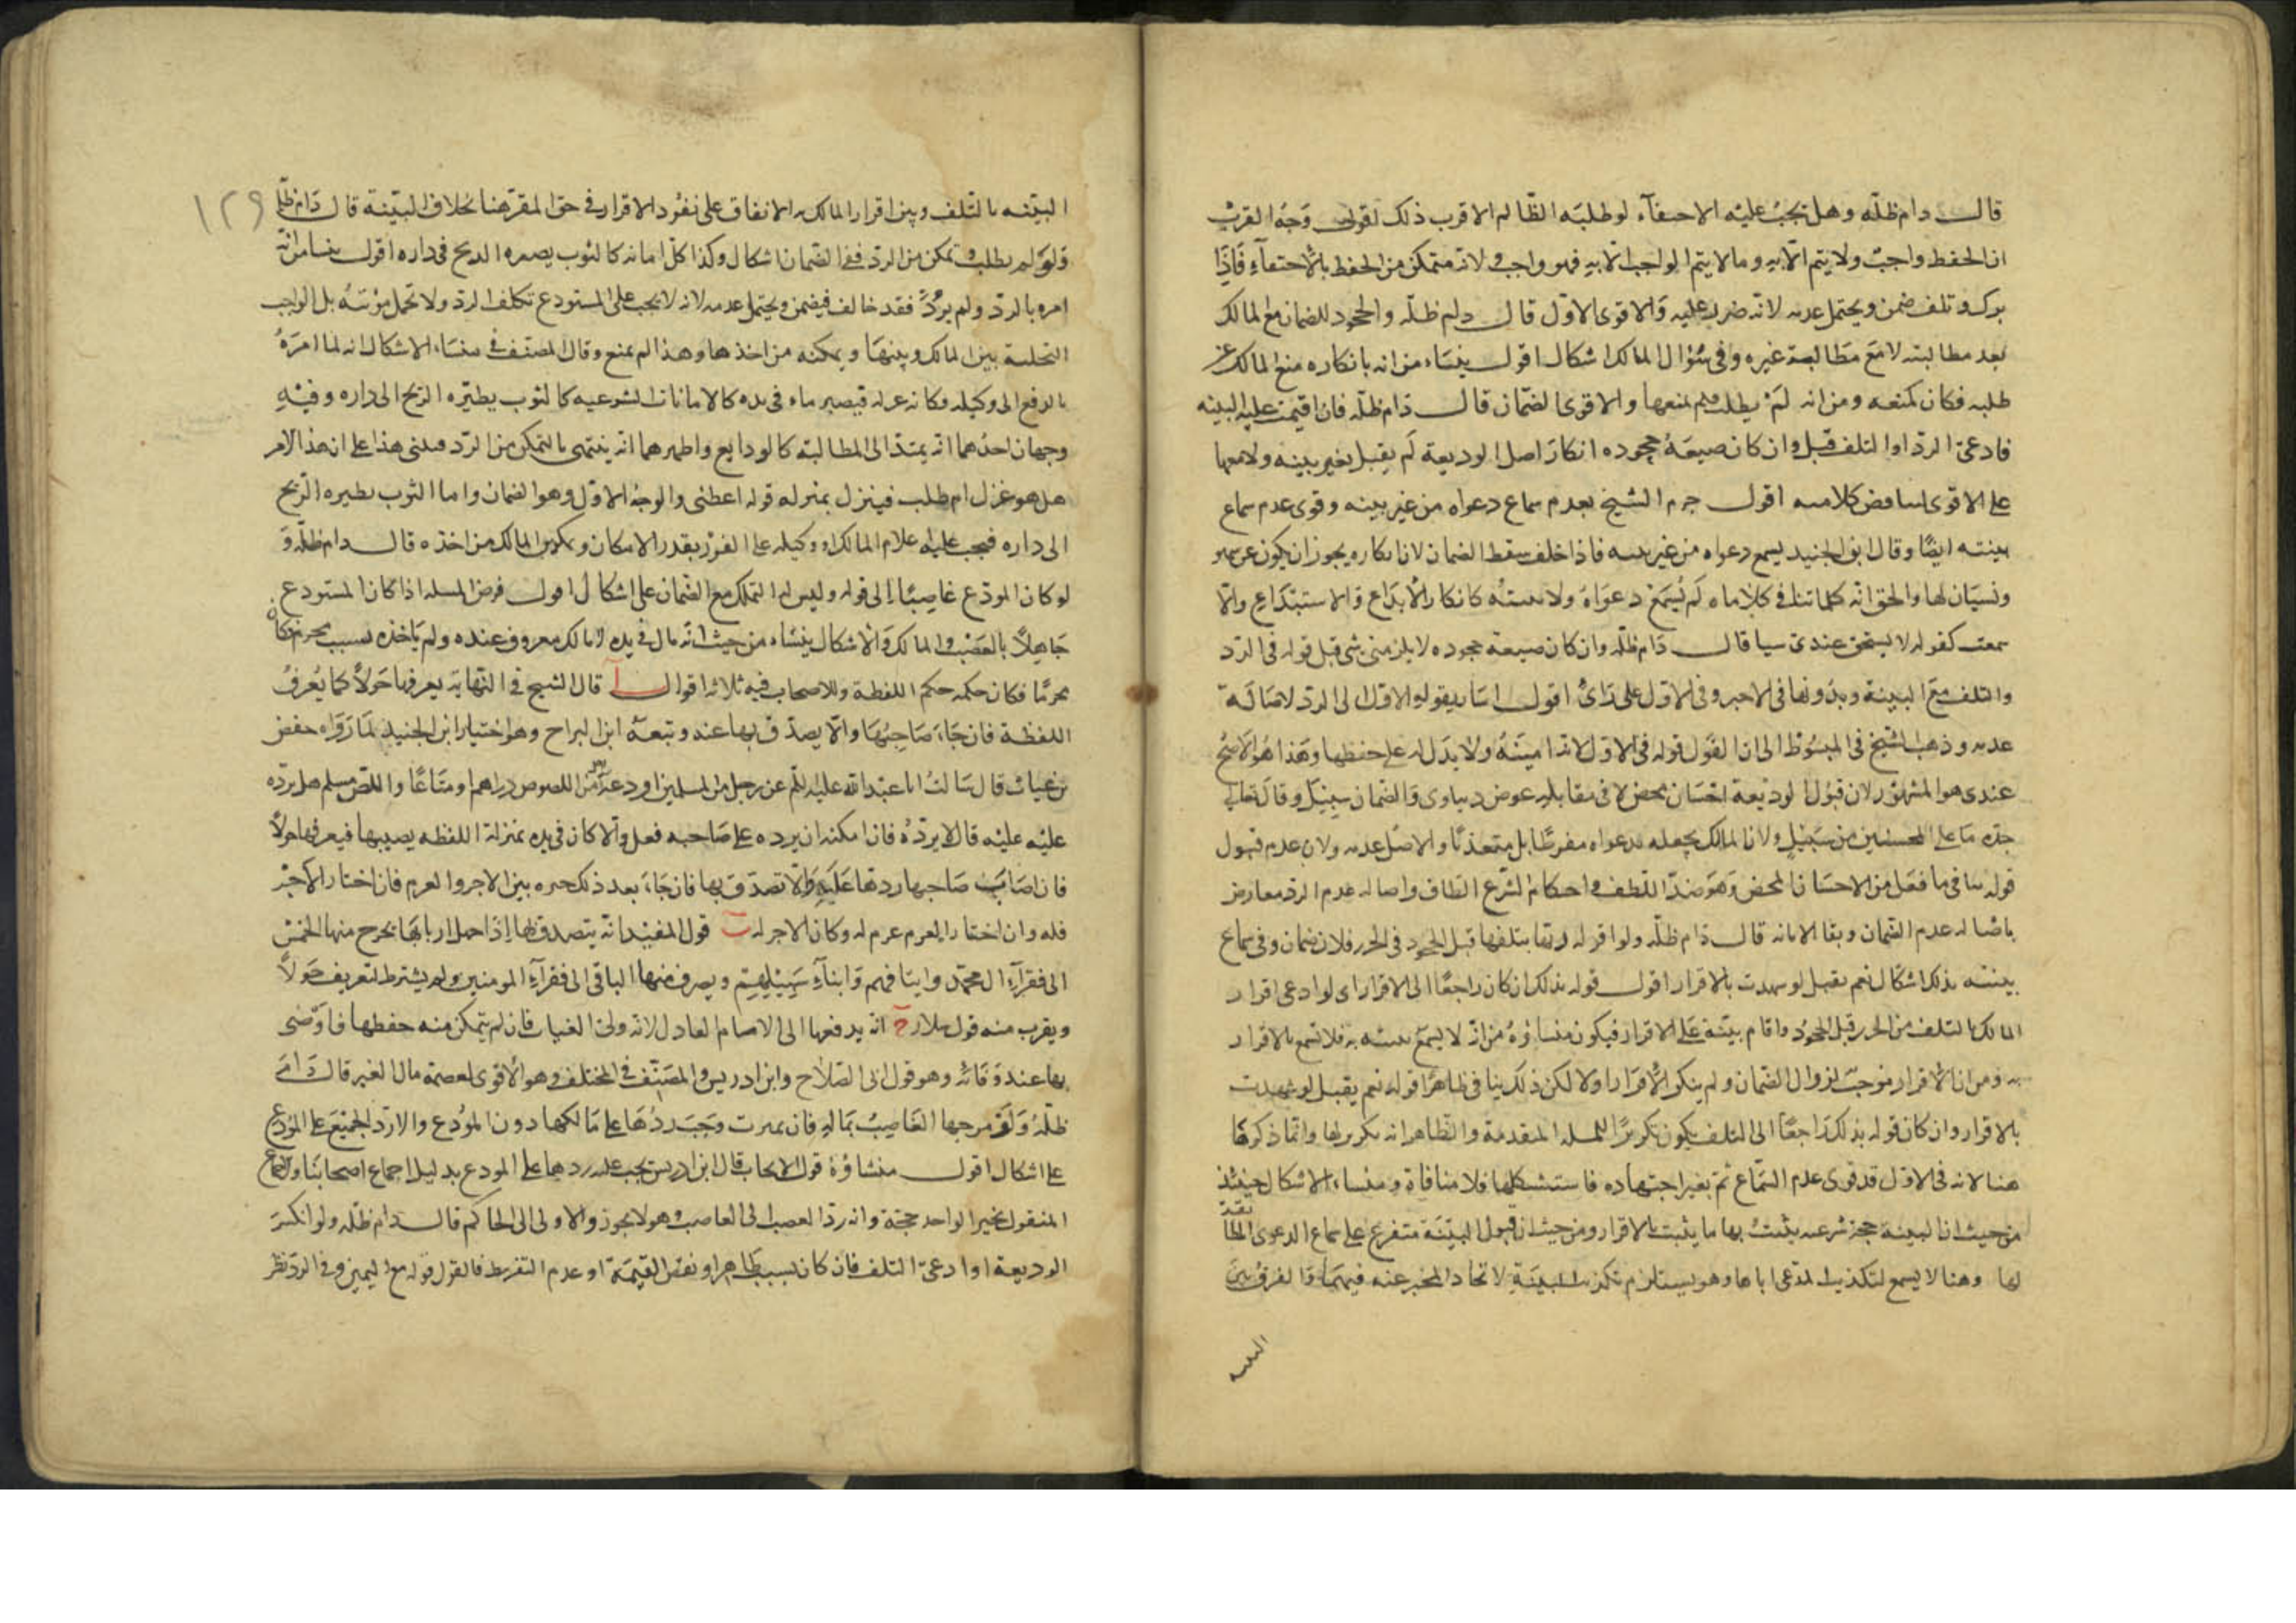 قال دام ظله وهل يجب عليه الاختفاء لو طلبه الظالم الاقرب ذلك اقول وجه القرب
ان الحفظ واجب ولا يتم الا به وما لا يتم الواجب الا به فهو واجب ولانه متمكن من الحفظ بالاختفاء فاذا
ترك وتلف ضمن ويحتمل عدمه لانه ضرر عليه والاقوى الاول قال دام ظله والجحود للضمان مع المالك
بعد مطالبته لا مع مطالبة غيره وفي سؤال المالك اشكال اقول ينشاء من انه بانكاره منع المالك عن
طلبه فكان كمنعه ومن انه لم يطلب فلم يمنعها والاقوى الضمان قال دام ظله فان اقيمت عليه البينه
فادعى الرد او التلف قبل وان كان صيغة جحوده انكار اصل الوديعة لم يقبل بغير بينه ولا معها
على الاقوى لتناقض كلاميه اقول جزم الشيخ بعدم سماع دعواه من غير بينه وقوى عدم سماع
بينته ايضا وقال ابن الجنيد يسمع دعواه من غير بينه فاذا حلف سقط الضمان لان انكاره يجوز ان يكون عن سهو
ونسيان لها والحق انه كلما تنافى كلاماه لم تسمع دعواه ولا بينته كانكار الايداع والاستيداع والا
سمعت كقوله لا يستحق عندي شيا قال دام ظله وان كان صيغة جحوده لا يلزمني شي قبل قوله في الرد
والتلف مع البينة وبدونها في الاخير وفي الاول على راي اقول اشار بقوله الاول الى الرد لاصالة
عدمه وذهب الشيخ في المبسوط الى ان القول قوله في الاول لانه امينه ولا بد له على حفظها وهذا هو الاصح
عندي هو المشهور لان قبول الوديعة احسان محض لا في مقابله عوض دنياوي والضمان سبيل وقال تعالى
جده ما على المحسنين من سبيل ولان المالك يجعله بدعواه مفرطا بل متعديا والاصل عدمه ولان عدم قبول
قوله ينافي ما فعل من الاحسان المحض وهو ضد اللطف واحكام الشرع الطاف واصاله عدم الرد معارض
باصاله عدم الضمان وبقا الامانه قال دام ظله ولو اقر له ربها بتلفها قبل الجحود في الحرز فلا ضمان وفي سماع
بينته بذلك اشكال نعم يقبل لو شهدت بالاقرار اقول قوله بذلك ان كان راجعا الى الاقرار اي لو ادعى اقرار
المالك بالتلف من الحرز قبل الجحود واقام بينة على الاقرار فيكون منشاؤه من انه لا يسمع بينته به فلا تسمع بالاقرار
به ومن ان الاقرار موجب لزوال الضمان ولم ينكر الاقرار اولا لكن ذلك ينافي ظاهرا قوله نعم يقبل لو شهدت
بالاقرار وان كان قوله بذلك راجعا الى التلف يكون تكريرا للمسله المتقدمة والظاهر انه تكرير لها وانما ذكرها
هنا لانه في الاول قد قوى عدم السماع ثم تغير اجتهاده فاستشكلها فلا منافاة ومنشاء الاشكال حينئذ
من حيث ان البينة حجة شرعيه يثبت بها ما يثبت بالاقرار ومن حيث ان قبول البينة متفرع على سماع الدعوى المطا بقة
لها وهنا لا يسمع لتكذيب المدعى اياها وهو يستلزم تكذيب البينة لاتحاد المخبر عنه فيهما والفرق بين
البينه
١٢٩
البينه بالتلف وبين اقرار المالك به الاتفاق على نفوذ الاقرار في حق المقر هنا بخلاف البينة قال دام ظله
ولو لم يطلب وتمكن من الرد ففي الضمان اشكال وكذا كل امانه كالثوب يطيره الريح في داره اقول ينشا من انه
امره بالرد ولم يرد فقد خالف فيضمن ويحتمل عدمه لانه لا يجب على المستودع تكلف الرد ولا تحمل مؤنته بل الواجب
التخلية بين المالك وبينها ويمكنه من اخذها وهذا لم يمنع وقال المصنف في منشاء الاشكال انه لما امره
بالدفع الى وكيله فكانه عزله فيصير ماء في يده كالامانات الشرعيه كالثوب يطيره الريح الى داره وفيه
وجهان احدهما انه يمتد الى المطالبة كالودايع واظهرهما انه ينتهي بالتمكن من الرد فبنى هذا على ان هذا الامر
هل هو عزل ام طلب فينزل بمنزله قوله اعطني والوجه الاول وهو الضمان واما الثوب يطيره الريح
الى داره فيجب عليه اعلام المالك او وكيله على الفور بقدر الامكان وتمكين المالك من اخذه قال دام ظله و
لو كان المودع غاصبا الى قوله وليس له التملك مع الضمان على اشكال اقول فرض المسله اذا كان المستودع
جاهلا بالغصب والمالك والاشكال ينشاء من حيث انه مال في يده لا مالك معروف عنده ولم ياخذه بسبب محرم فكان
محرما فكان حكمه حكم اللقطة وللاصحاب فيه ثلاثه اقوال آ قال الشيخ في النهاية يعرفها حولا كما يعرف
اللقطة فان جاء صاحبها والا يصدق بها عنه وتبعه ابن البراج وهو اختيار ابن الجنيد لما رواه حفص
بن غياث قال سالت ابا عبد الله عليه السلم عن رجل من المسلمين اودعه رجل من اللصوص دراهم او متاعا واللص مسلم هل يرده
عليه عليه قال لا يرده فان امكنه ان يرده على صاحبه فعل والا كان في يده بمنزلة اللقطه يصيبها فيعرفها حولا
فان اصاب صاحبها ردها عليه والا تصدق بها فان جاء بعد ذلك خيره بين الاجر والغرم فان اختار الاجر
فله وان اختار الغرم غرم له وكان الاجر له ب قول المفيد انه يتصدق بها اذا جهل اربابها بخرج منها الخمس
الى فقراء ال محمد وايتامهم وابناء سبيلهم ويصرف منها الباقي الى فقراء المومنين ولم يشترط التعريف حولا
ويقرب منه قول سلار ج انه يدفعها الى الامام العادل لانه ولى الغياب فان لم يتمكن منه حفظها فاوصى
بها عند وفاته وهو قول ابي الصلاح وابن ادريس والمصنف في المختلف وهو الاقوى لعصمة مال الغير قال دام
ظله ولو مزجها الغاصب بماله فان تميزت وجب ردها على مالكها دون المودع والا رد الجميع على المودع
على اشكال اقول منشاؤه قول الاصحاب قال ابن ادريس يجب عليه ردها على المودع بدليل اجماع اصحابنا والاجماع
المنقول بخبر الواحد حجة وانه رد الغصب الى الغاصب وهو لا يجوز والاولى الى الحاكم قال دام ظله ولو انكر
الوديعة او ادعى التلف فان كان بسبب ظاهر او نقص القيمة او عدم التفريط فالقول قوله مع اليمين وفي الرد نظر